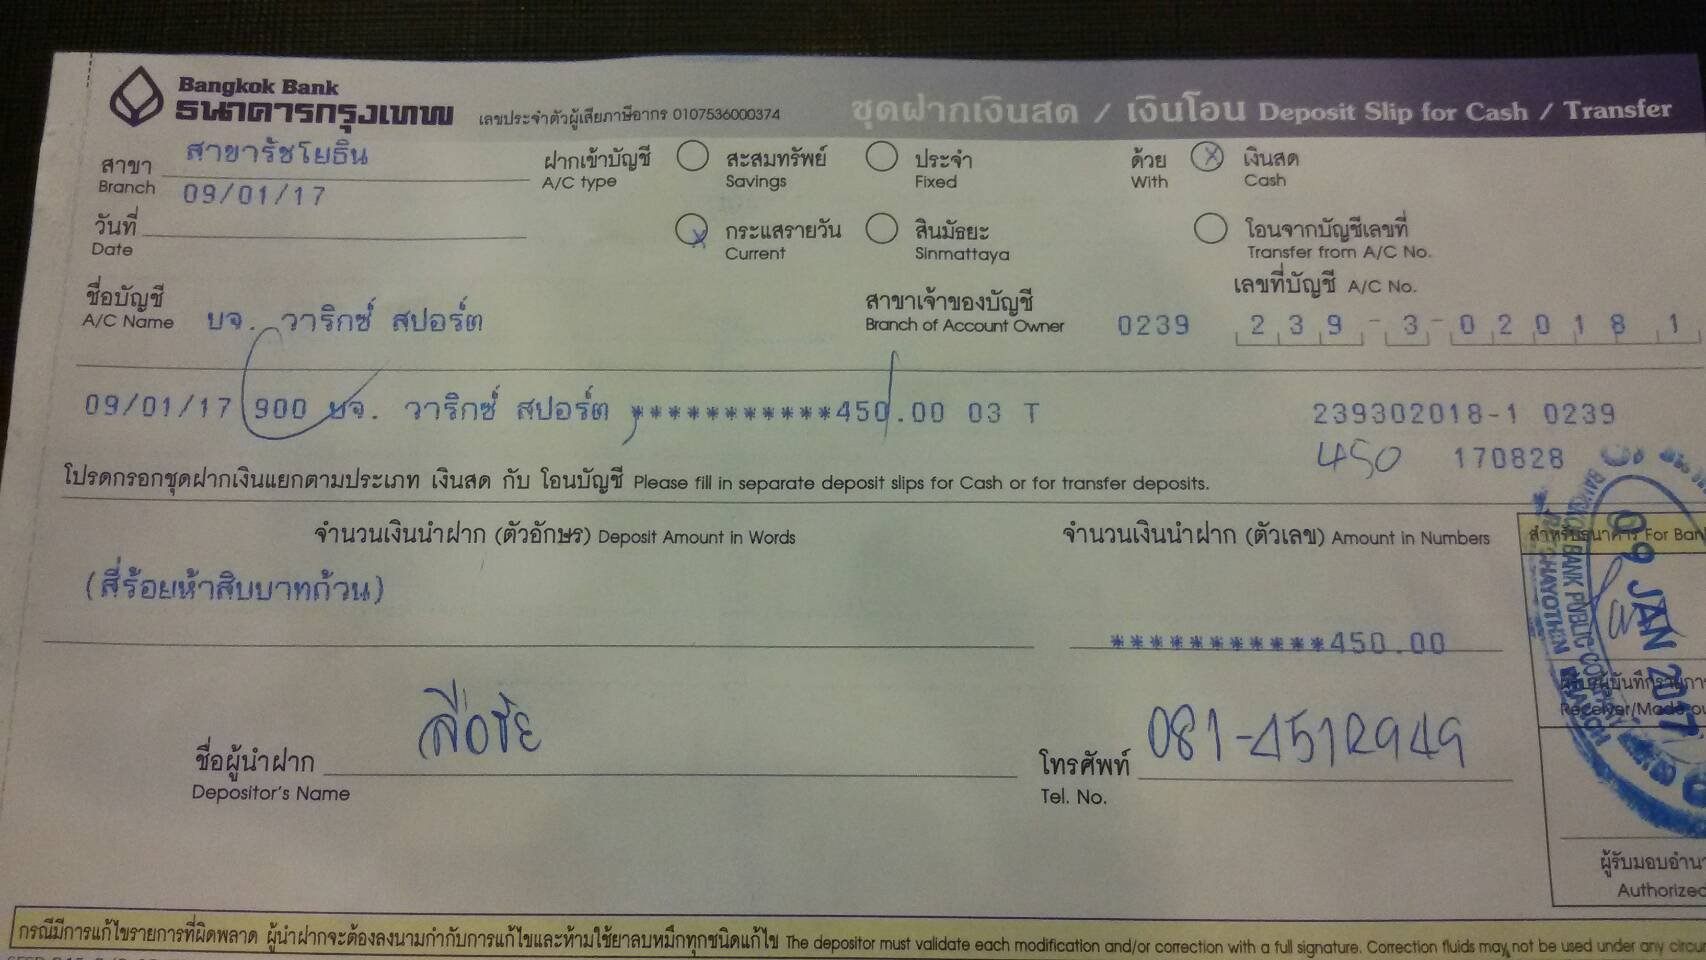 Bangkok Bank
ธนาคารกรุงเทพ
เลขประจำตัวผู้เสียภาษีอากร 0107536000374
ชุดฝากเงินสด / เงินโอน Deposit Slip for Cash / Transfer
สาขา Branch สาขารัชโยธิน
ฝากเข้าบัญชี A/C type
สะสมทรัพย์ Savings
ประจำ Fixed
ด้วย With
เงินสด Cash
วันที่ Date 09/01/17
กระแสรายวัน Current
สินมัธยะ Sinmattaya
โอนจากบัญชีเลขที่ Transfer from A/C No.
ชื่อบัญชี A/C Name บจ. วาริกซ์ สปอร์ต
สาขาเจ้าของบัญชี Branch of Account Owner 0239
เลขที่บัญชี A/C No.
239-3-02018 1
09/01/17 900 บจ. วาริกซ์ สปอร์ต ***********450.00 03 T 239302018-1 0239
450 170828
โปรดกรอกชุดฝากเงินแยกตามประเภท เงินสด กับ โอนบัญชี Please fill in separate deposit slips for Cash or for transfer deposits.
จำนวนเงินนำฝาก (ตัวอักษร) Deposit Amount in Words
จำนวนเงินนำฝาก (ตัวเลข) Amount in Numbers
สำหรับธนาคาร For Ban
(สี่ร้อยห้าสิบบาทถ้วน)
***********450.00
09 JAN 2017
Receiver/Made ou
ชื่อผู้นำฝาก
Depositor's Name
โทรศัพท์ 081-4512949
Tel. No.
ผู้รับมอบอำนา
Authorized
กรณีมีการแก้ไขรายการที่ผิดพลาด ผู้นำฝากจะต้องลงนามกำกับการแก้ไขและห้ามใช้ยาลบหมึกทุกชนิดแก้ไข The depositor must validate each modification and/or correction with a full signature. Correction fluids may not be used under any circu